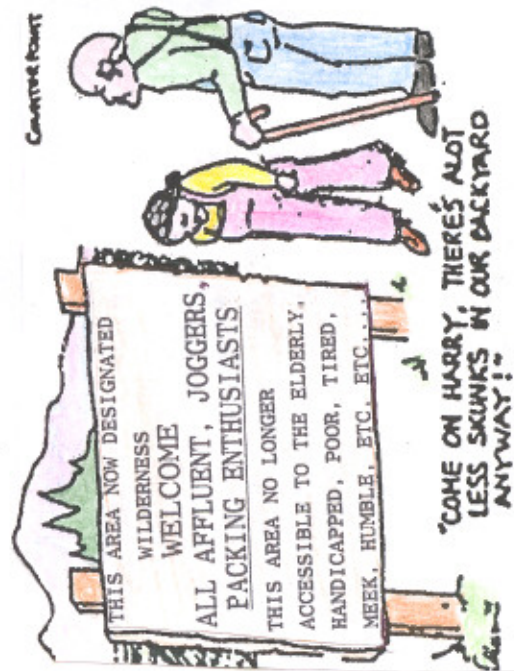 COUNTER POINT
THIS AREA NOW DESIGNATED
WILDERNESS
WELCOME
ALL AFFLUENT, JOGGERS,
PACKING ENTHUSIASTS
THIS AREA NO LONGER
ACCESSIBLE TO THE ELDERLY,
HANDICAPPED, POOR, TIRED,
MEEK, HUMBLE, ETC. ETC....
"COME ON HARRY, THERE'S ALOT
LESS SKUNKS IN OUR BACKYARD
ANYWAY!"